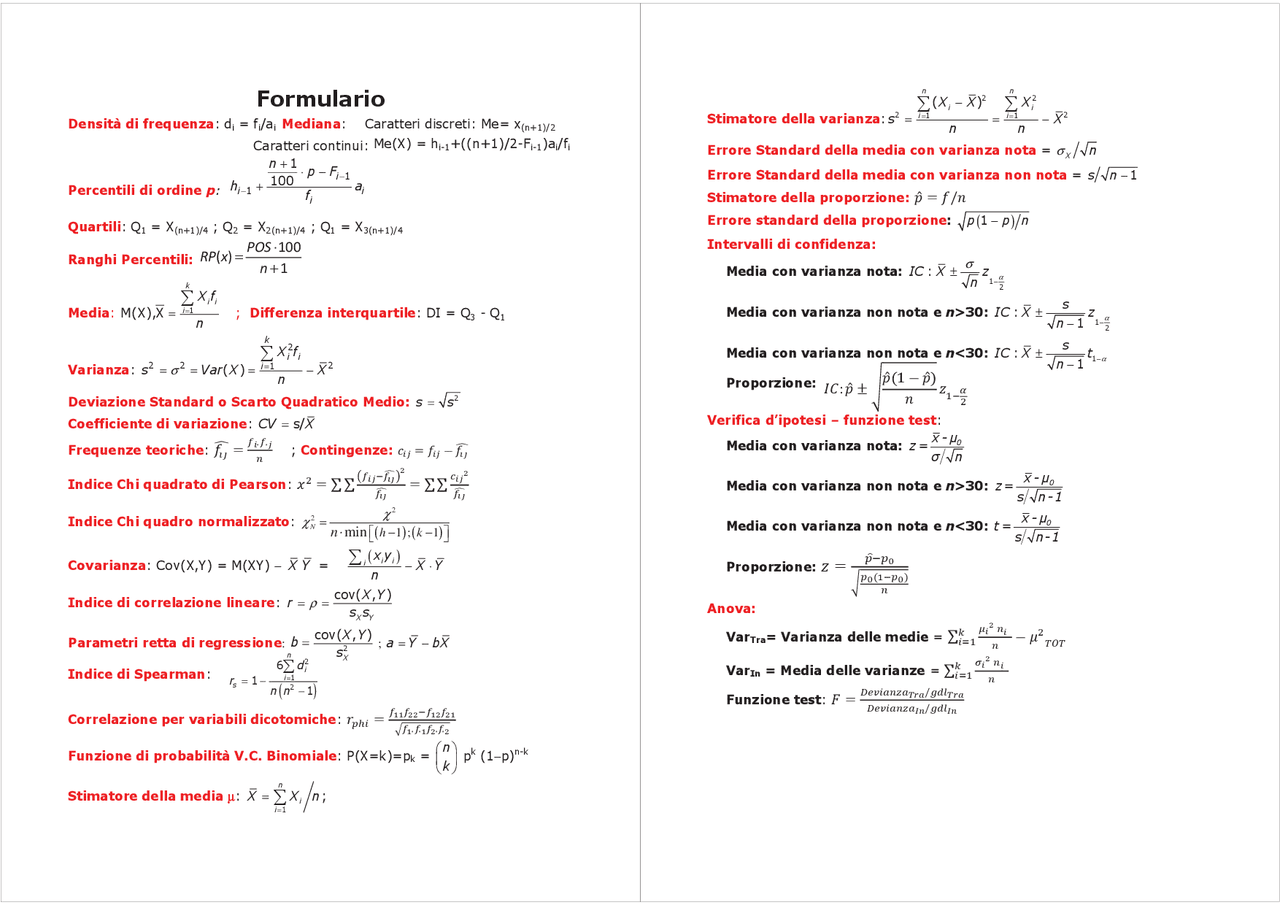 Formulario
Densità di frequenza: dᵢ = fᵢ/aᵢ Mediana: Caratteri discreti: Me= x₍ₙ₊₁₎/₂
Caratteri continui: Me(X) = hᵢ₋₁+((n+1)/2-Fᵢ₋₁)aᵢ/fᵢ
Percentili di ordine p: $h_{i-1} + \frac{\frac{n+1}{100} \cdot p - F_{i-1}}{f_i} a_i$
Quartili: Q₁ = X₍ₙ₊₁₎/₄ ; Q₂ = X₂₍ₙ₊₁₎/₄ ; Q₁ = X₃₍ₙ₊₁₎/₄
Ranghi Percentili: $RP(x) = \frac{POS \cdot 100}{n+1}$
Media: $M(X), \bar{X} = \frac{\sum_{i=1}^{k} X_i f_i}{n}$ ; Differenza interquartile: DI = Q₃ - Q₁
Varianza: $s^2 = \sigma^2 = Var(X) = \frac{\sum_{i=1}^{k} X_i^2 f_i}{n} - \bar{X}^2$
Deviazione Standard o Scarto Quadratico Medio: $s = \sqrt{s^2}$
Coefficiente di variazione: $CV = s/\bar{X}$
Frequenze teoriche: $\widehat{f_{ij}} = \frac{f_{i\cdot} f_{\cdot j}}{n}$ ; Contingenze: $c_{ij} = f_{ij} - \widehat{f_{ij}}$
Indice Chi quadrato di Pearson: $x^2 = \sum\sum \frac{(f_{ij} - \widehat{f_{ij}})^2}{\widehat{f_{ij}}} = \sum\sum \frac{c_{ij}^2}{\widehat{f_{ij}}}$
Indice Chi quadro normalizzato: $\chi_N^2 = \frac{\chi^2}{n \cdot \min[(h-1);(k-1)]}$
Covarianza: Cov(X,Y) = M(XY) – $\bar{X}\,\bar{Y}$ = $\frac{\sum_i (x_i y_i)}{n} - \bar{X} \cdot \bar{Y}$
Indice di correlazione lineare: $r = \rho = \frac{cov(X,Y)}{s_X s_Y}$
Parametri retta di regressione: $b = \frac{cov(X,Y)}{s_X^2}$ ; $a = \bar{Y} - b\bar{X}$
Indice di Spearman: $r_s = 1 - \frac{6\sum_{i=1}^{n} d_i^2}{n(n^2-1)}$
Correlazione per variabili dicotomiche: $r_{phi} = \frac{f_{11}f_{22} - f_{12}f_{21}}{\sqrt{f_{1\cdot} f_{\cdot 1} f_{2\cdot} f_{\cdot 2}}}$
Funzione di probabilità V.C. Binomiale: P(X=k)=pₖ = $\binom{n}{k}$ pᵏ (1–p)ⁿ⁻ᵏ
Stimatore della media μ: $\bar{X} = \sum_{i=1}^{n} X_i / n$ ;
Stimatore della varianza: $s^2 = \frac{\sum_{i=1}^{n} (X_i - \bar{X})^2}{n} = \frac{\sum_{i=1}^{n} X_i^2}{n} - \bar{X}^2$
Errore Standard della media con varianza nota = $\sigma_X / \sqrt{n}$
Errore Standard della media con varianza non nota = $s/\sqrt{n-1}$
Stimatore della proporzione: $\hat{p} = f/n$
Errore standard della proporzione: $\sqrt{p(1-p)/n}$
Intervalli di confidenza:
Media con varianza nota: $IC : \bar{X} \pm \frac{\sigma}{\sqrt{n}} z_{1-\frac{\alpha}{2}}$
Media con varianza non nota e n>30: $IC : \bar{X} \pm \frac{s}{\sqrt{n-1}} z_{1-\frac{\alpha}{2}}$
Media con varianza non nota e n<30: $IC : \bar{X} \pm \frac{s}{\sqrt{n-1}} t_{1-\alpha}$
Proporzione: $IC: \hat{p} \pm \sqrt{\frac{\hat{p}(1-\hat{p})}{n}} z_{1-\frac{\alpha}{2}}$
Verifica d’ipotesi – funzione test:
Media con varianza nota: $z = \frac{\bar{x} - \mu_0}{\sigma/\sqrt{n}}$
Media con varianza non nota e n>30: $z = \frac{\bar{x} - \mu_0}{s/\sqrt{n-1}}$
Media con varianza non nota e n<30: $t = \frac{\bar{x} - \mu_0}{s/\sqrt{n-1}}$
Proporzione: $z = \frac{\hat{p} - p_0}{\sqrt{\frac{p_0(1-p_0)}{n}}}$
Anova:
Var_Tra= Varianza delle medie = $\sum_{i=1}^{k} \frac{\mu_i^2 n_i}{n} - \mu^2_{TOT}$
Var_In = Media delle varianze = $\sum_{i=1}^{k} \frac{\sigma_i^2 n_i}{n}$
Funzione test: $F = \frac{Devianza_{Tra}/gdl_{Tra}}{Devianza_{In}/gdl_{In}}$